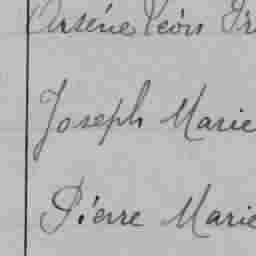 Arsène Léon
Joseph Marie
Pierre Marie